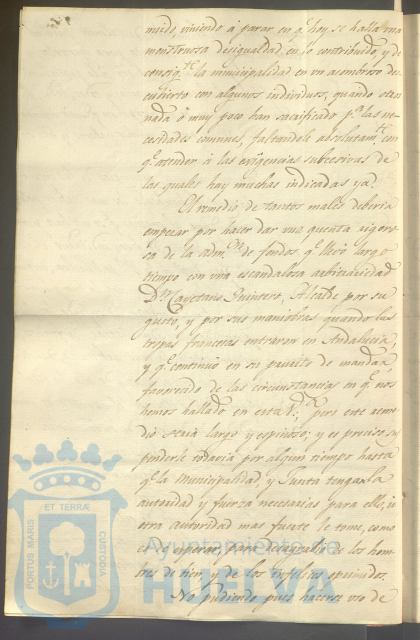 miedo, viniendo á parar en q.e hoy se halla una
monstruosa desigualdad en lo contribuido, y de
consig.te la municipalidad en un asombroso des-
cubierto con algunos individuos, quando otros
nada ó muy poco han sacrificado p.a las ne-
cesidades comunes, faltandole absolutam.te con
q.e atender á las exigencias subcesivas de
las quales hay muchas indicadas ya.
El remedio de tantos males deberia
empezar por hacer dar una quenta rigoro-
sa de la adm.on de fondos, q.e llevó largo
tiempo con una escandalosa arbitrariedad
D.n Cayetano Quintero, Alcalde por su
gusto, y por sus maniobras quando las
tropas francesas entraron en Andalucia,
y q.e continuó en su prurito de mandar,
favorecido de las circunstancias en q.e nos
hemos hallado en esta V.a; pero este reme-
dio seria largo y espinoso; y es preciso sus-
penderle todavia por algun tiempo hasta
q.e la Municipalidad, y Junta tengan la
autoridad y fuerza necesarias para ello, ú
otra autoridad mas fuerte le tome, como
es de esperar, para desagravio de los hom-
bres de bien, y de los infelices oprimidos.
No pudiendo pues hacerse uso de
PORTUS MARIS
ET TERRÆ
CUSTODIA
Ayuntamiento de
HUELVA